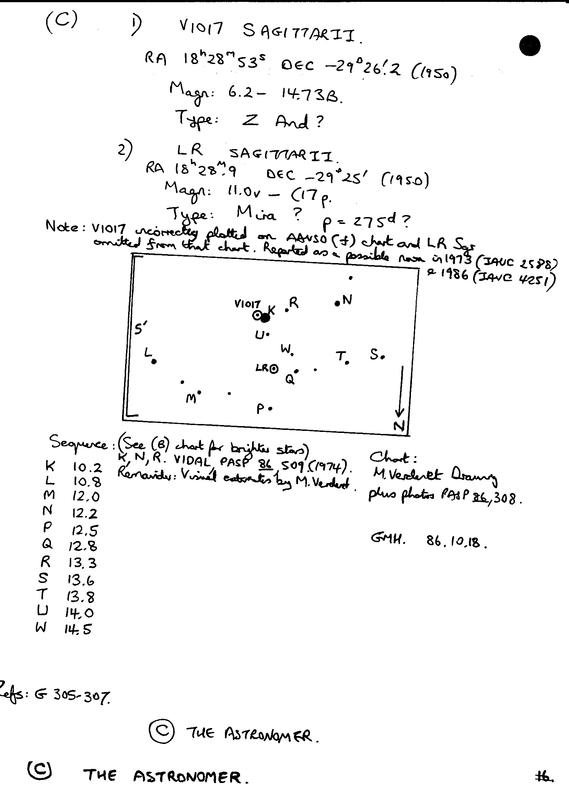 (C) 1) V1017 SAGITTARII.
RA 18ʰ28ᵐ53ˢ DEC -29°26'.2 (1950)
Magn: 6.2 - 14.73B.
Type: Z And?
2) LR SAGITTARII.
RA 18ʰ28ᵐ.9 DEC -29°25' (1950)
Magn: 11.0v - (17p.
Type: Mira ? P = 275ᵈ?
Note: V1017 incorrectly plotted on AAVSO (f) chart and LR Sgr
omitted from that chart. Reported as a possible nova in 1973 (IAUC 2588)
& 1986 (IAUC 4251)
N
V1017 K R
5'
U
W
L T S
LR
Q
M
P
N
Sequence: (See (B) chart for brighter stars)
K, N, R. VIDAL PASP 86 509 (1974).
Remainder: Visual estimates by M. Verdenet.
K 10.2
L 10.8
M 12.0
N 12.2
P 12.5
Q 12.8
R 13.3
S 13.6
T 13.8
U 14.0
W 14.5
Chart:
M. Verdenet Drawing
plus photos PASP 86, 308.
GMH. 86.10.18.
Refs: G 305-307.
© THE ASTRONOMER.
© THE ASTRONOMER.